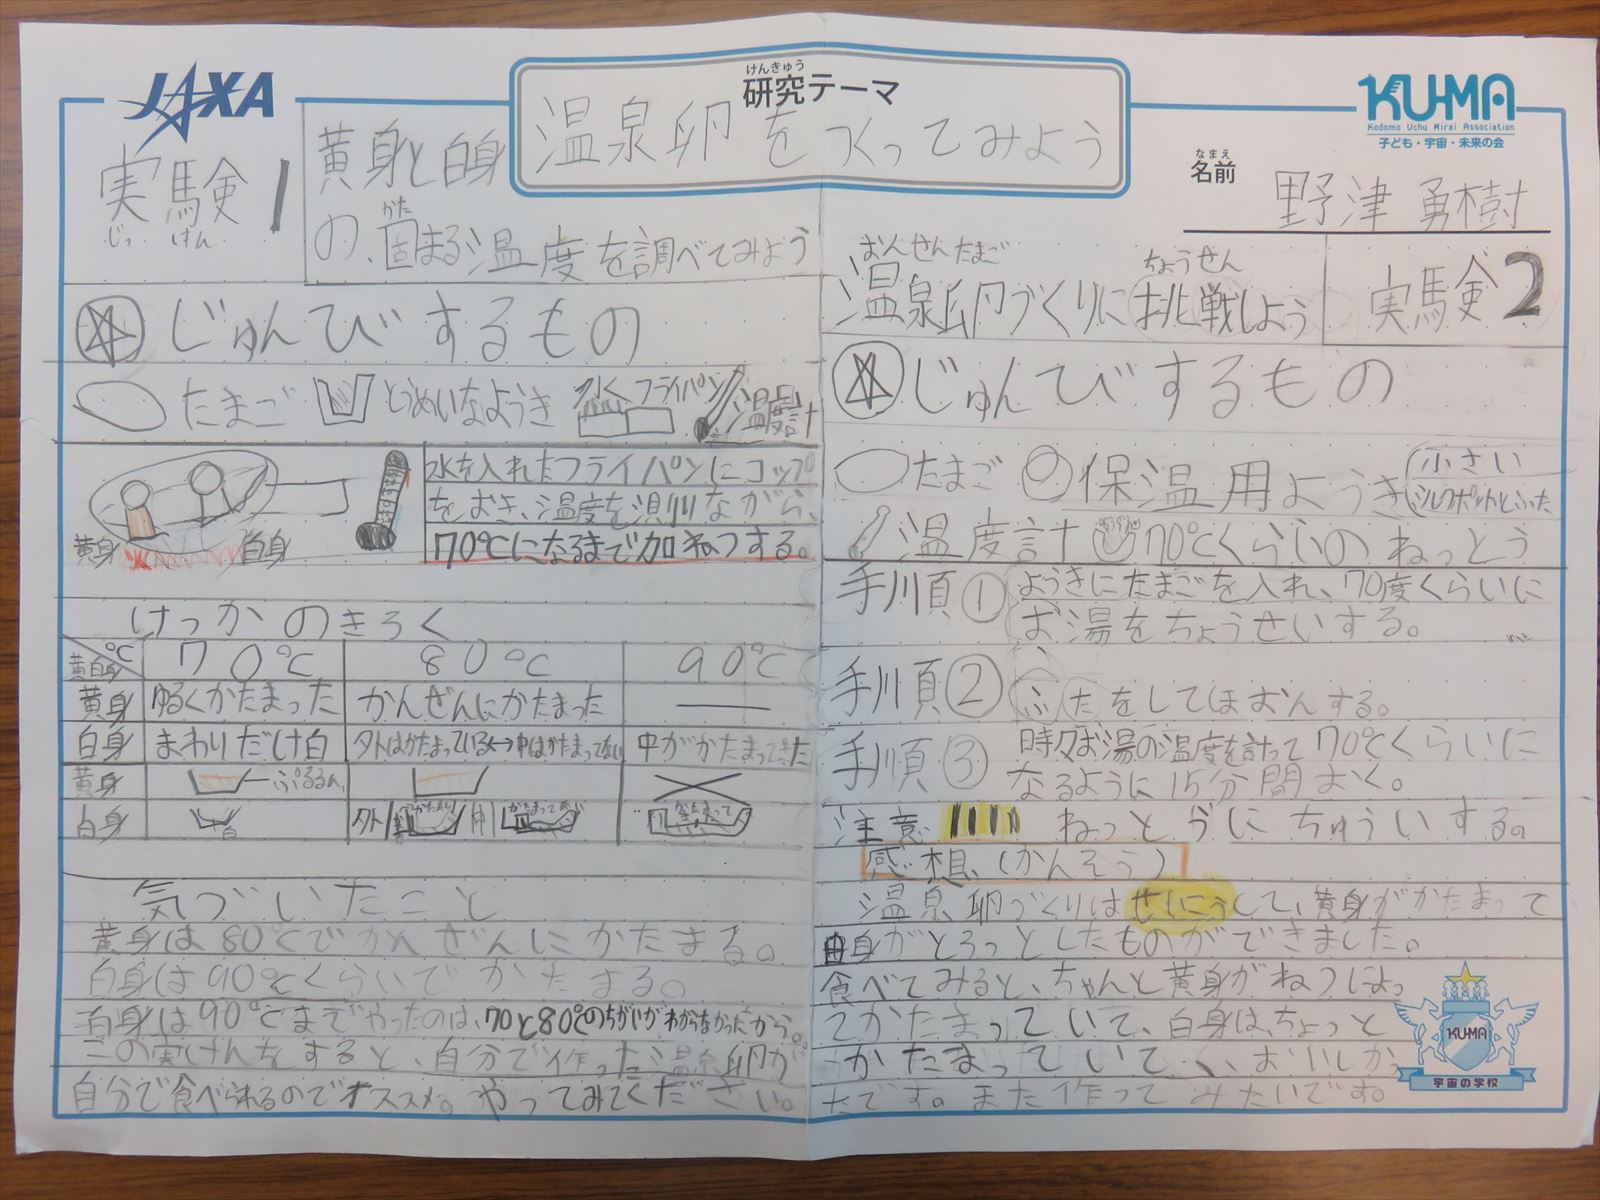 JAXA
けんきゅう
研究テーマ
温泉卵をつくってみよう
KU-MA
Kodomo Uchu Mirai Association
子ども・宇宙・未来の会
なまえ
名前
野津 勇樹
実験1
じっけん
黄身と白身
かた
の、固まる温度を調べてみよう
じゅんびするもの
たまご とうめいなようき 水 フライパン 温度計
黄身 白身
水を入れたフライパンにコップ
をおき、温度を測りながら、
70℃になるまで加ねつする。
けっかのきろく
黄白身 ℃ 70℃ 80℃ 90℃
黄身 ゆるくかたまった かんぜんにかたまった ―
白身 まわりだけ白 外はかたまっている↔中はかたまってない 中がかたまってきた
黄身 ぷるるん
白身 外 中 かたまって
気づいたこと
黄身は80℃でかんぜんにかたまる。
白身は90℃くらいでかたまる。
白身は90℃までやったのは、70と80℃のちがいがわからなかったから。
この実けんをすると、自分で作った温泉卵が
自分で食べられるのでオススメ。やってみてください。
おんせんたまご ちょうせん
温泉卵づくりに挑戦しよう
実験2
じゅんびするもの
たまご 保温用ようき 小さい
温度計 70℃くらいのねっとう
手順① ようきにたまごを入れ、70度くらいに
お湯をちょうせいする。
手順② ふたをしてほおんする。
手順③ 時々お湯の温度を計って70℃くらいに
なるように15分間おく。
注意 ねっとうにちゅういする。
感想、(かんそう)
温泉卵づくりはせいこうして、黄身がかたまって
白身がとろっとしたものができました。
食べてみると、ちゃんと黄身がねつによっ
てかたまっていて、白身は、ちょっと
かたまっていて、おいしかっ
たです。また作ってみたいです。
KU-MA
宇宙の学校